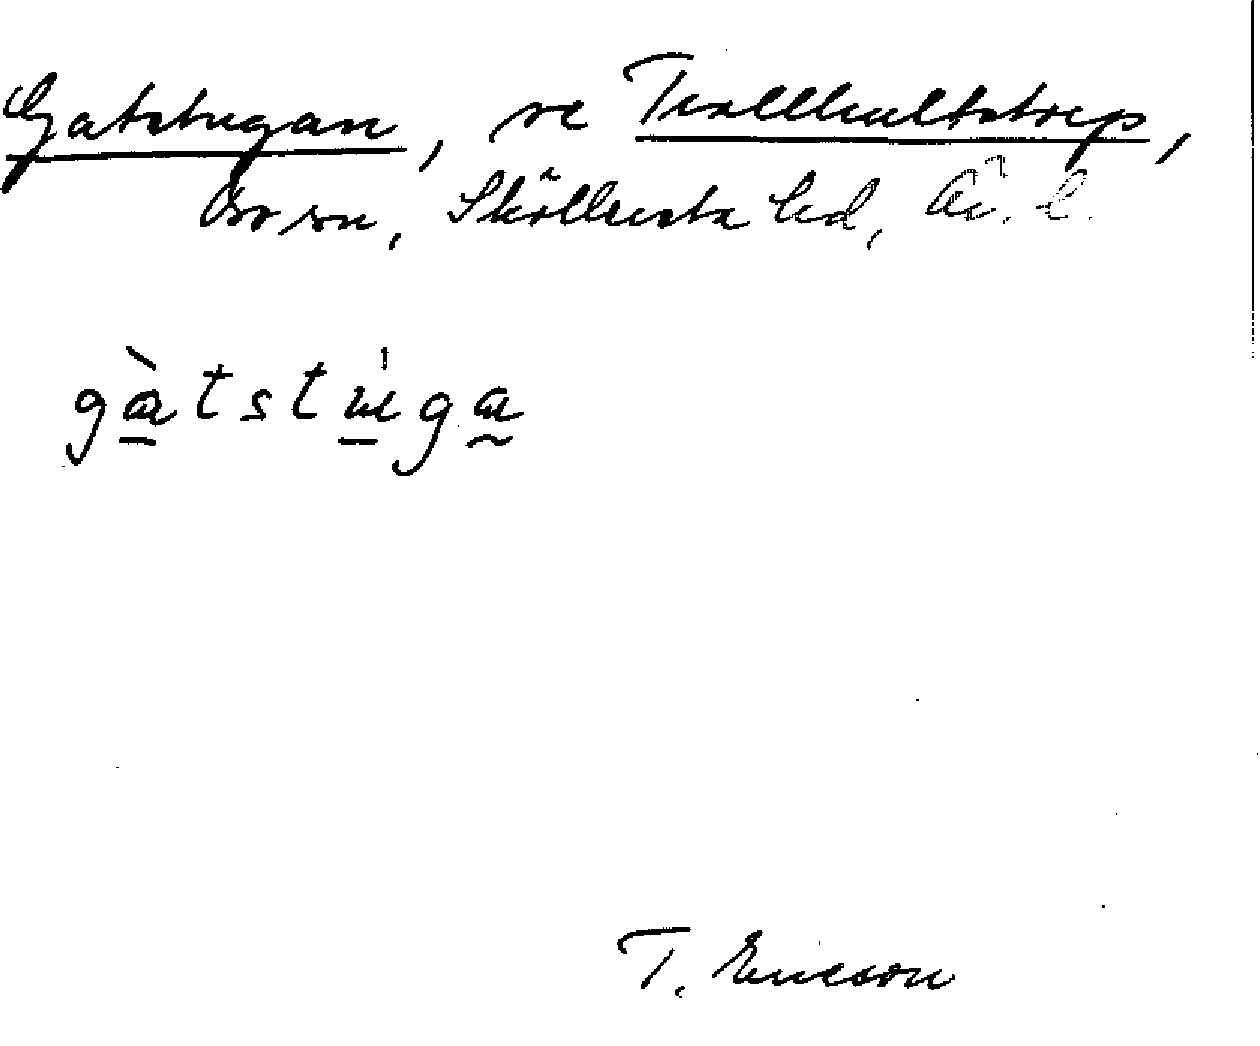 Gatstugan, se Trollhultstorp,
Asker sn, Sköllersta hd, Ör. l.
gàtstúga
T. Ericson